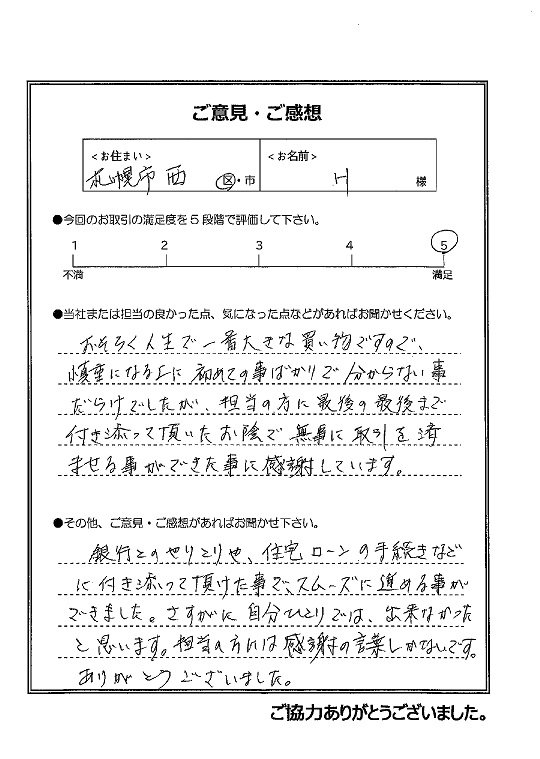 ご意見・ご感想
<お住まい>
<お名前>
札幌市西 区・市
H 様
●今回のお取引の満足度を5段階で評価して下さい。
1 2 3 4 5
不満 満足
●当社または担当の良かった点、気になった点などがあればお聞かせください。
おそらく人生で一番大きな買い物ですので、
慎重になる上に初めての事ばかりで分からない事
だらけでしたが、担当の方に最後の最後まで
付き添って頂いたお陰で無事に取引を済
ませる事ができた事に感謝しています。
●その他、ご意見・ご感想があればお聞かせ下さい。
銀行とのやりとりや、住宅ローンの手続きなど
に付き添って頂けた事で、スムーズに進める事が
できました。さすがに自分ひとりでは、出来なかった
と思います。担当の方には感謝の言葉しかないです。
ありがとうございました。
ご協力ありがとうございました。